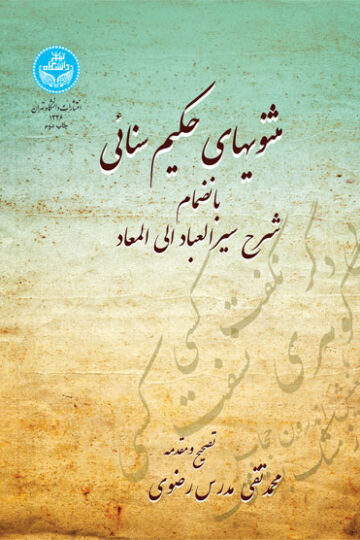 انتشارات دانشگاه تهران
۱۳۲۶
چاپ دوم
مثنویهای حکیم سنائی
بانضمام
شرح سیر العباد الی المعاد
تصحیح و مقدمه
محمد تقی مدرس رضوی